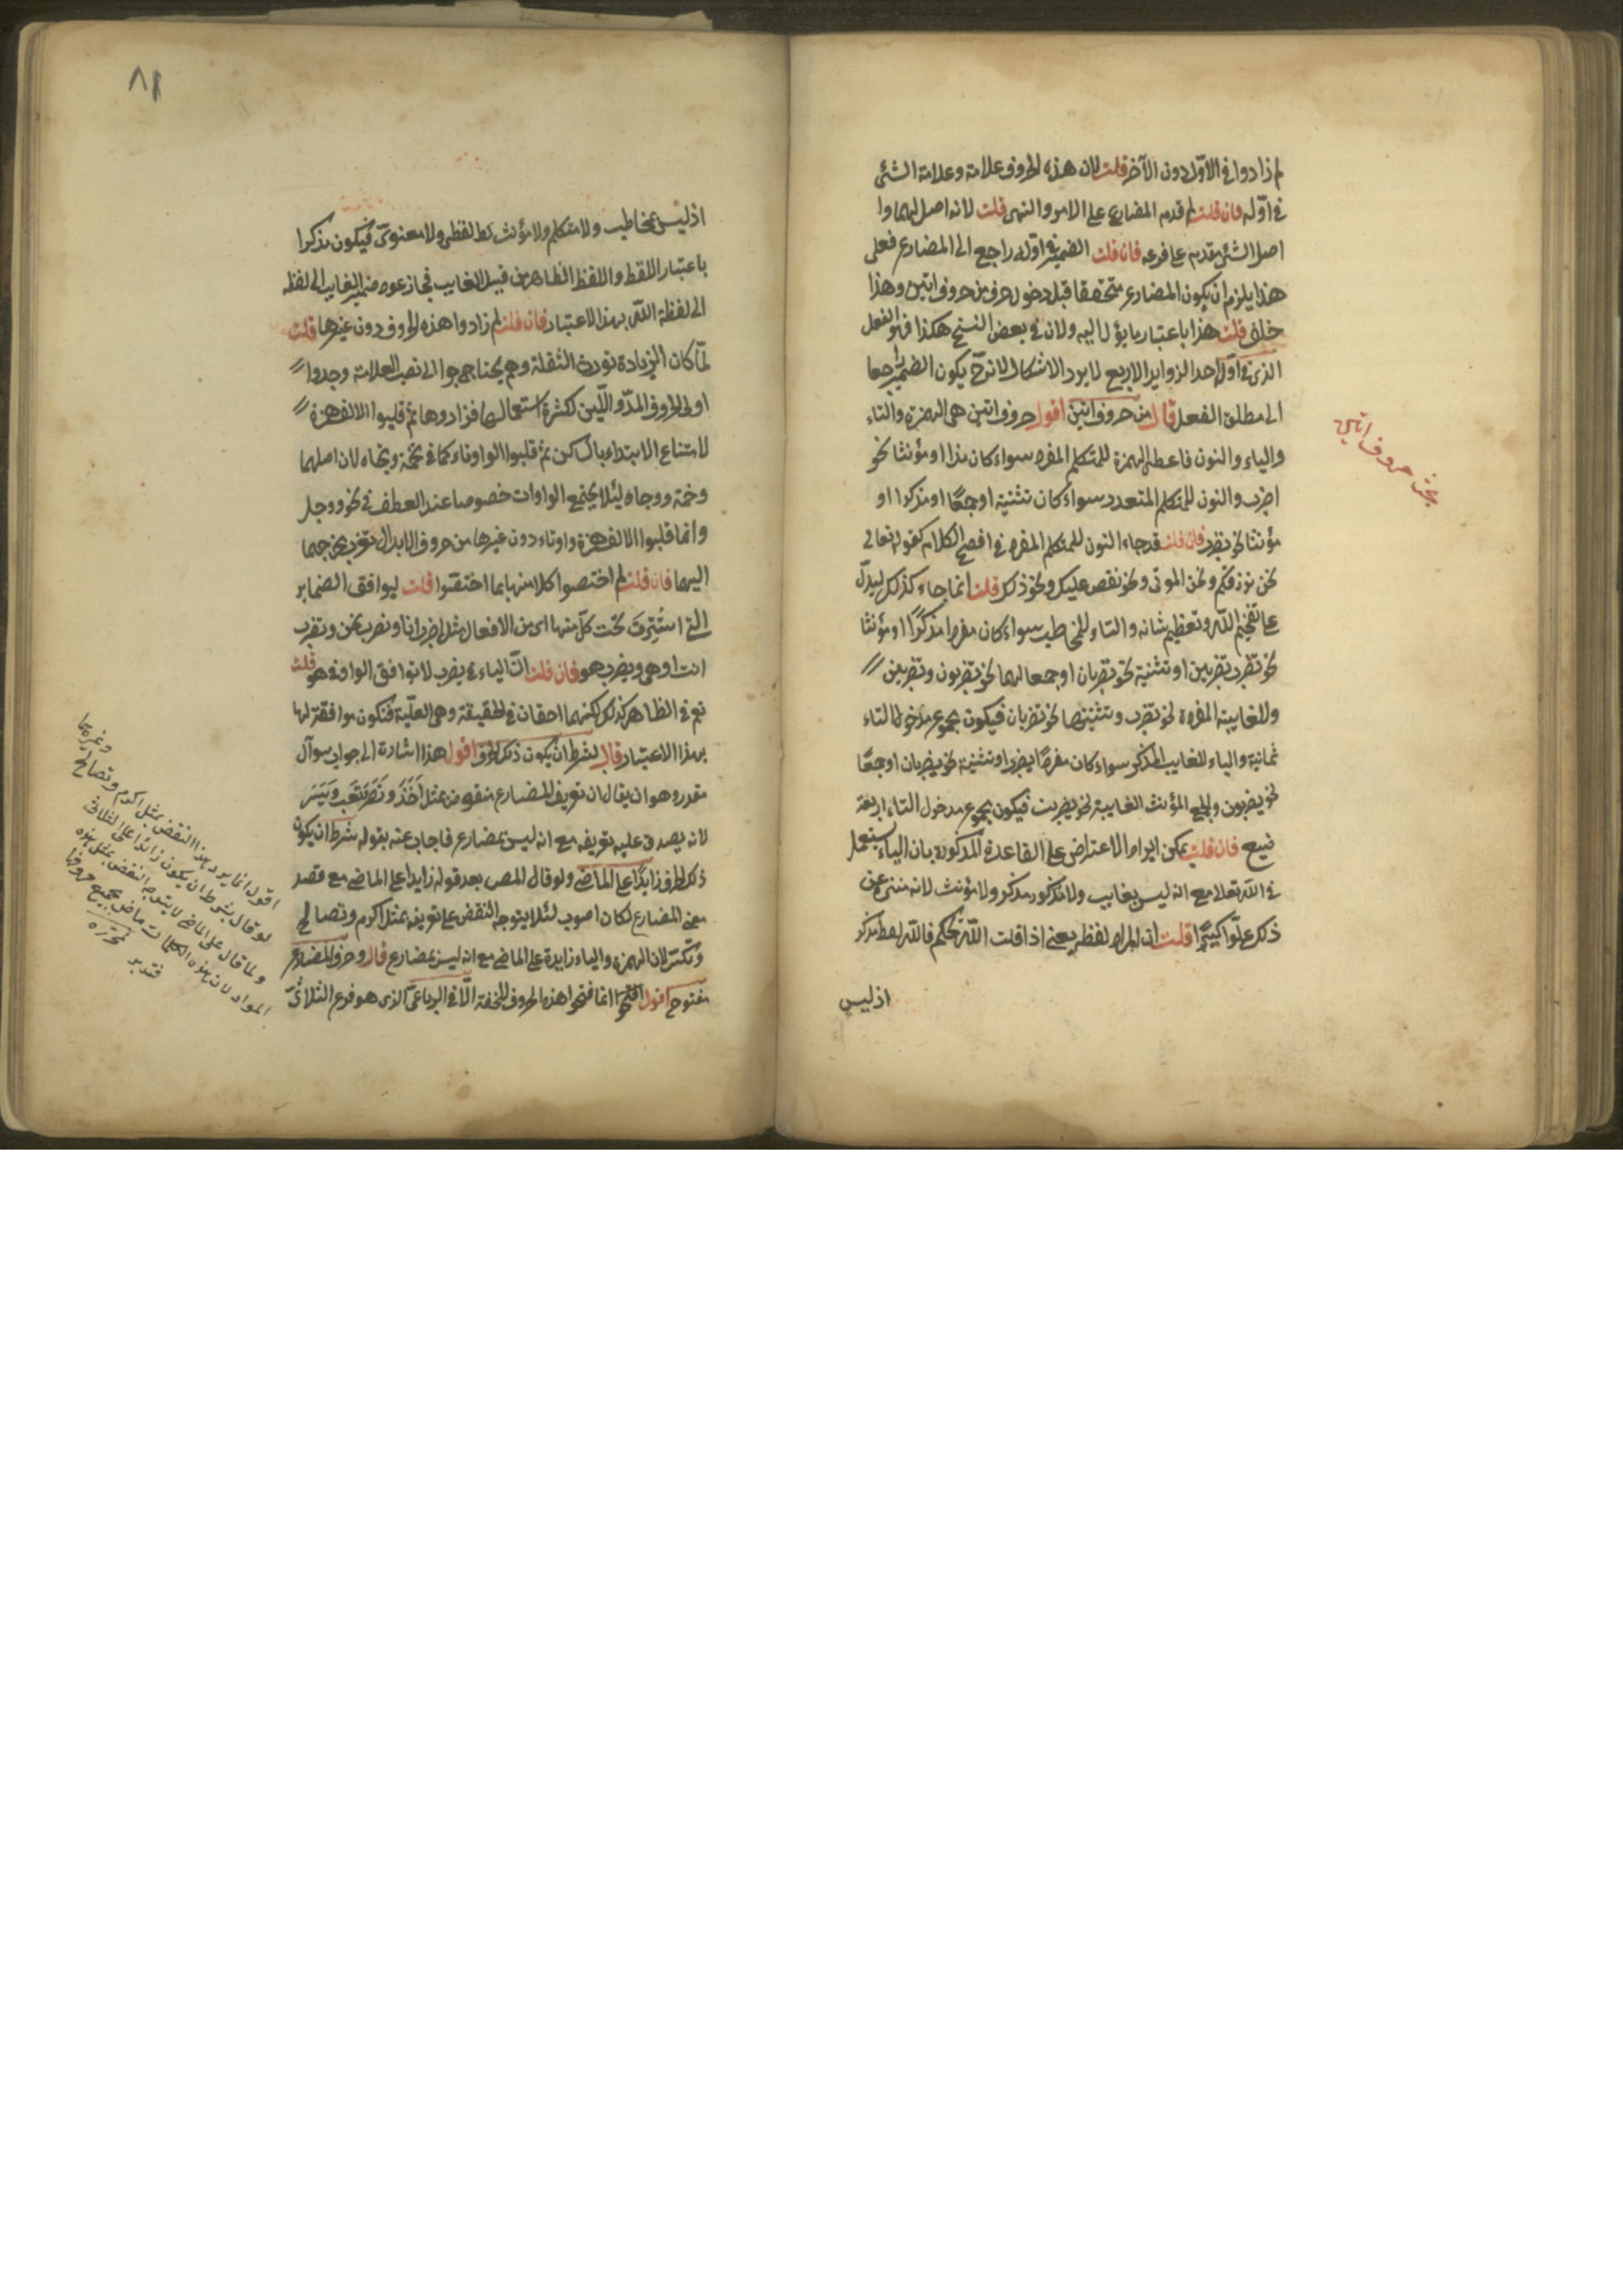 لم زادوا في الاول دون الآخر قلت لان هذه الحروف علامة وعلامة الشئ
في اوله فان قلت لم قدم المضارع على الامر والنهى قلت لانه اصل لهما وا
اصل الشئ مقدم على فرعه فان قلت الضمير في اوله راجع الى المضارع فعلى
هذا يلزم ان يكون المضارع متحققا قبل دخول حرف من حروف اتين وهذا
خلف قلت هذا باعتبار ما يؤل اليه ولان في بعض النسخ هكذا فهو الفعل
الذى في اوله احد الزوايد الاربع لا يرد الاشكال لانه ح يكون الضمير راجعا
الى مطلق الفعل قال من حروف اتين اقول حروف اتين هى الهمزة والتاء
والياء والنون فاعطى الهمزة للمتكلم المفرد سواء كان مذكرا او مؤنثا نحو
اضرب والنون للمتكلم المتعدد سواء كان تثنية او جمعًا او مذكرا او
مؤنثا نحو نضرب فان قلت قد جاء النون للمتكلم المفرد في افصح الكلام كقوله تعالى
نحن نرزقكم ونحن الموتى ونحن نقص عليك ونحو ذلك قلت انما جاء كذلك ليدلّ
على تفخيم لله وتعظيم شانه والتاء للمخاطب سواء كان مفردا مذكرًا او مؤنثا
نحو تضرب تضربين او تثنية نحو تضربان او جمعا لهما نحو تضربون وتضربين
وللغايبة المفردة نحو تضرب وتثنيتها نحو تضربان فيكون مجموع مدخول التاء
ثمانية والياء للغايب المذكر سواء كان مفردًا يضرب او تثنية نحو يضربان او جمعًا
نحو يضربون ولجمع المؤنث الغايبة نحو يضربن فيكون مجموع مدخول التاء اربعة
فان قلت يمكن ايراد الاعتراض على القاعدة المذكورة بان الياء يستعمل
في الله تعالى مع انه ليس بغايب ولا مذكور مذكر ولا مؤنث لانه منزه عن
ذلك علوا كبيرًا قلت ان المراد لفظه يعنى اذا قلت الله يحكم فالله لفظ مذكر
اذ ليس
بحث حروف اتين
٨١
اذ ليس بمخاطب ولا متكلم ولا مؤنث لا لفظى ولا معنوىّ فيكون مذكرا
باعتبار اللفظ واللفظ الظاهر من قبيل الغايب فجاز عود ضمير الغايب الى لفظه
الى لفظة الله بهذا الاعتبار فان قلت لم زادوا هذه الحروف دون غيرها قلت
لمّا كان الزيادة تورث الثقلة وهم يحتاجوا الى نصب العلامة وجدوا
اولى الحروف المدّ واللّين لكثرة استعمالهما فزادوها ثم قلبوا الالف همزة
لامتناع الابتداء بالساكن ثم قلبوا الواو تاء كما في تخمة وتجاه لان اصلهما
وخمة ووجاه لئلا يجتمع الواوات خصوصا عند العطف في نحو ووجل
وانما قلبوا الالف همزة واو تاء دون غيرها من حروف الابدال لقرب مخرجهما
اليهما فان قلت لم اختصوا كلا منها بما اختصّوا قلت ليوافق الضماير
التى استترت تحت كلّ منها اى من الافعال مثل اضرب انا ونضرب نحن وتضرب
انت او هى ويضرب هو فان قلت انّ الياء في يضرب لا توافق الواو في هو قلت
نعم في الظاهر كذلك لكنهما احقان في الحقيقة وهى العلّية فتكون موافقة لها
بهذا الاعتبار قال بشرط ان يكون ذلك الحرف اقول هذا اشارة الى جواب سوآل
مقدر وهو ان يقال ان تعريف المضارع منقوض بمثل اَخَذَ ونَصَرَ وتَعَبَ ويَئسَ
لانه يصدق عليه تعريفه مع انه ليس بمضارع فاجاب عنه بقوله بشرط ان يكون
ذلك الحرف زايدًا على الماضى ولو قال المصـ بعد قوله زايدا على الماضى مع قصد
معنى المضارع لكان اصوب لئلا يتوجه النقض على تعريفه بمثل اكرم وتصالح
وتكسّر لان الهمزة والياء زايدة على الماضى مع انه ليس بمضارع قال وحرف المضارع
مفتوح اقول انما فتحوا هذه الحروف للخفة الّا في الرباعىّ الذى هو فرع الثلاثىّ
اقول انما يرد بهذا النقض بمثل اكرم وتصالح وغيرهما
لو قال بشرط ان يكون زائدا على الثلاثى
ولما قال على الماضى لا يتوجه النقض بمثل هذه
المواد لان هذه الكلمات ماض بجميع حروفها
فتدبر